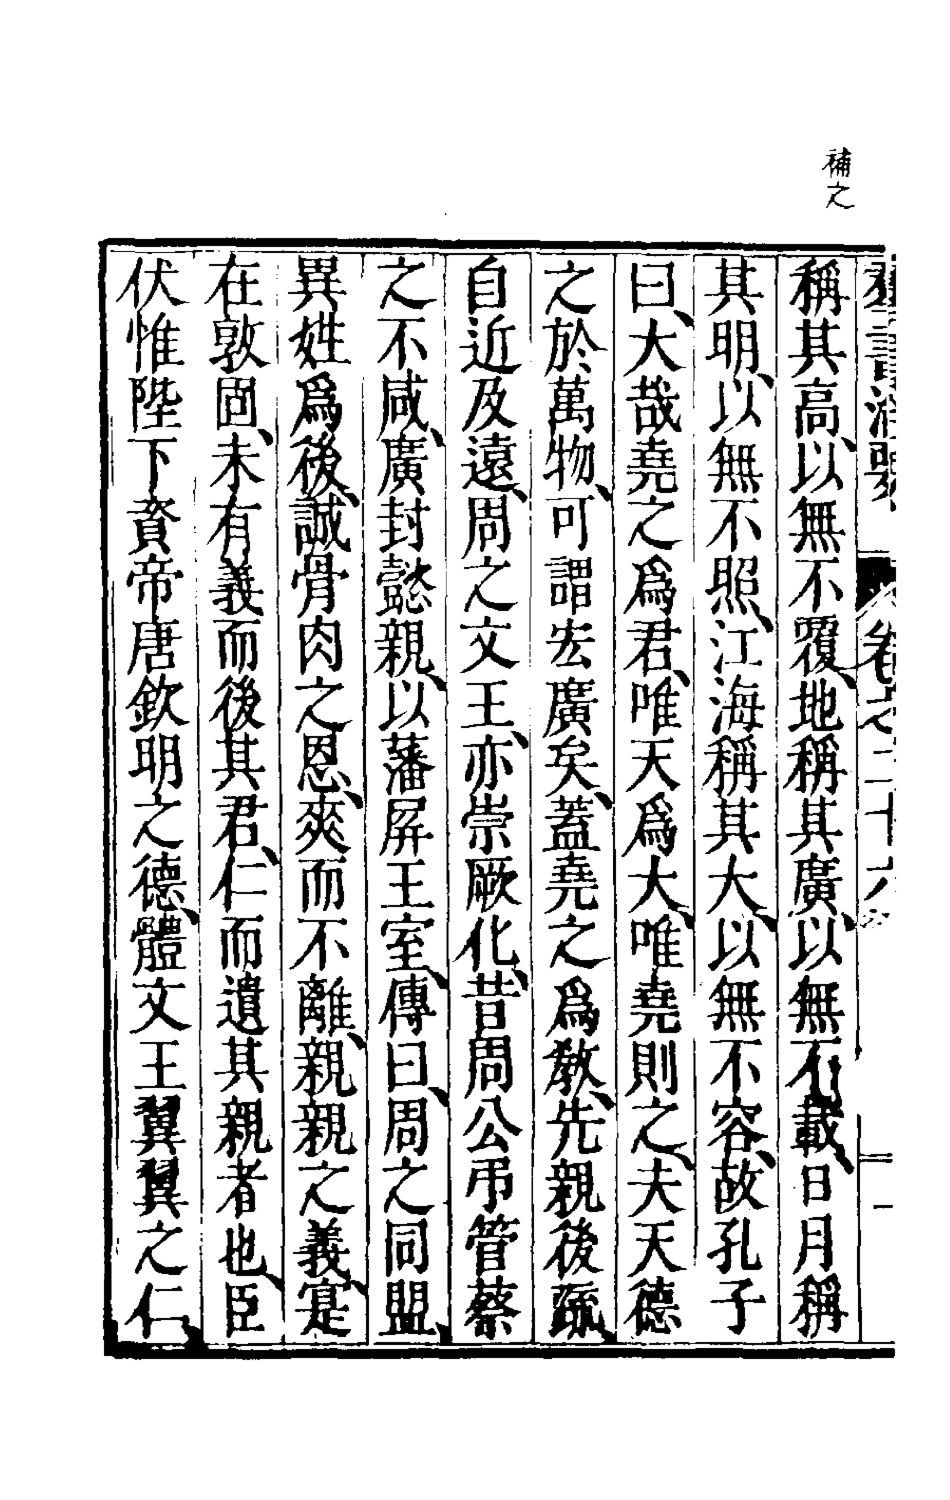 補之
羣書治要 卷之二十六
稱其高、以無不覆、地稱其廣、以無不載、日月稱
其明、以無不照、江海稱其大、以無不容、故孔子
曰、大哉堯之爲君、唯天爲大、唯堯則之、夫天德
之於萬物、可謂宏廣矣、蓋堯之爲教、先親後疏、
自近及遠、周之文王、亦崇厥化、昔周公弔管蔡
之不咸、廣封懿親、以藩屏王室、傳曰、周之同盟、
異姓爲後、誠骨肉之恩、爽而不離、親親之義、寔
在敦固、未有義而後其君、仁而遺其親者也、臣
伏惟陛下資帝唐欽明之德、體文王翼翼之仁、